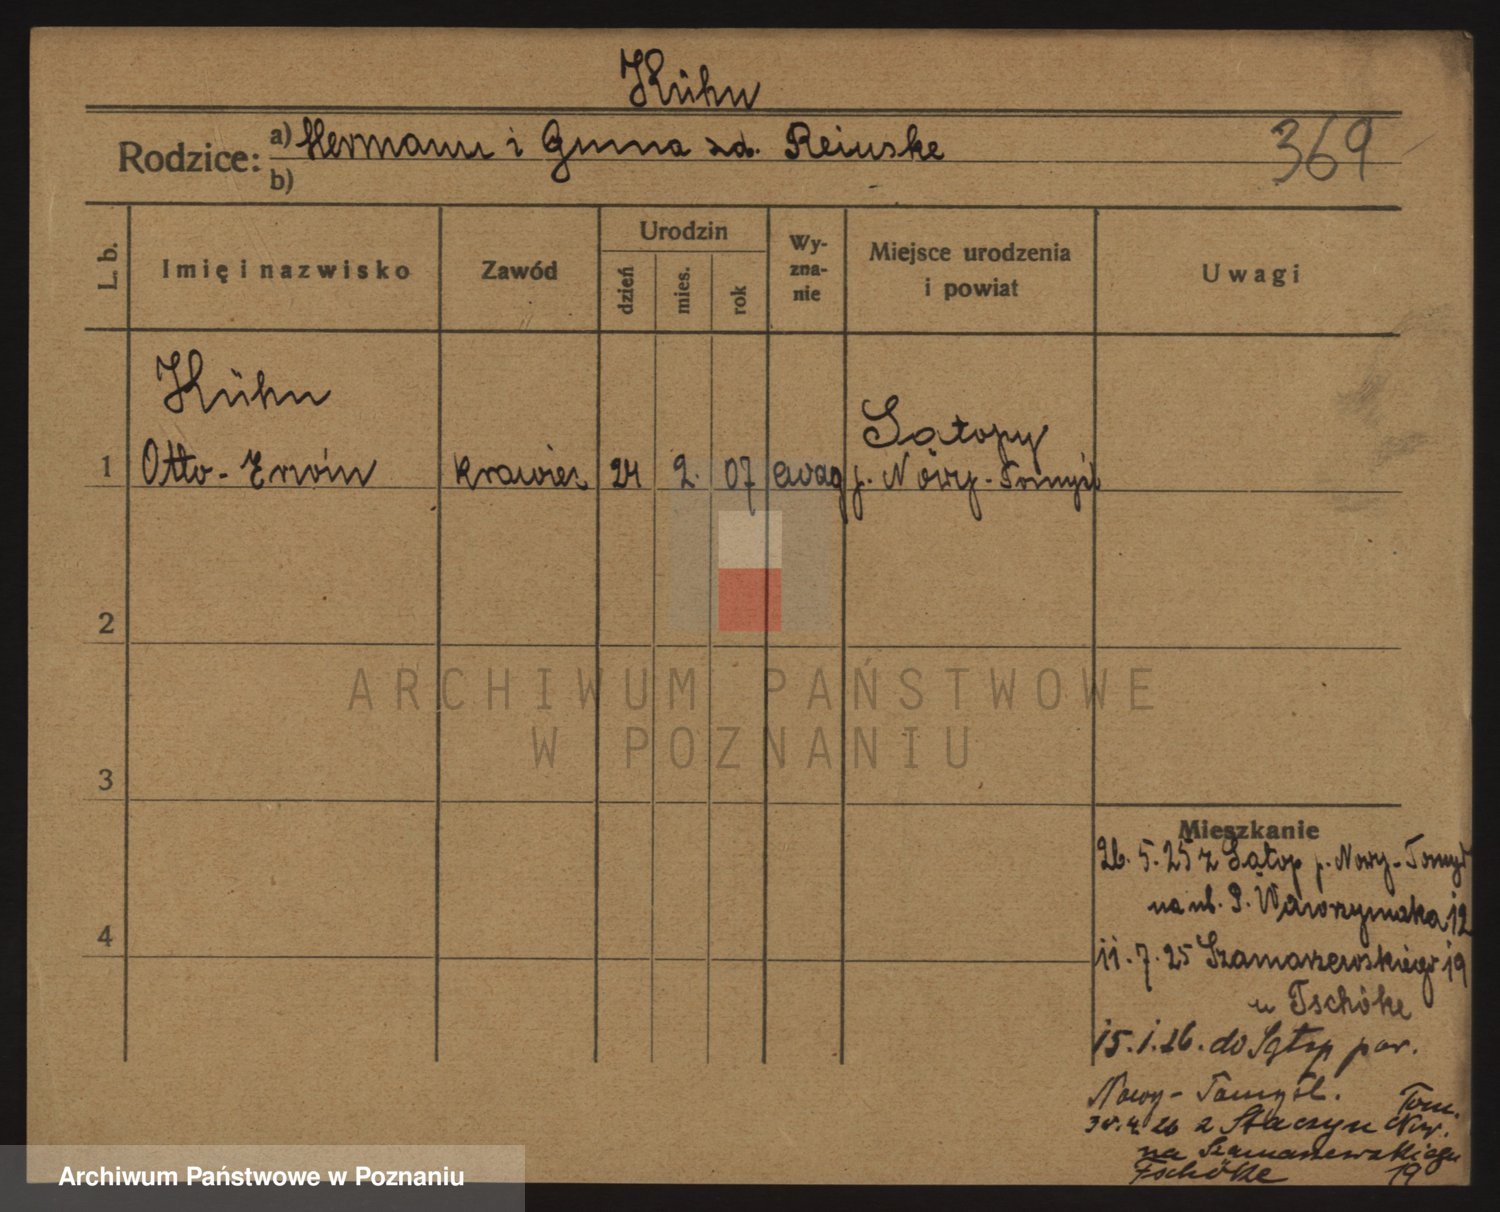 Kühn
Rodzice: a) Hermann i Emma zd. Reinske
369
b)
L. b.
Imię i nazwisko
Zawód
Urodzin
dzień
mies.
rok
Wy-
zna-
nie
Miejsce urodzenia
i powiat
Uwagi
Kühn
Sątopy
1 Otto - Erwin krawiec 24 2. 07 ewag p. Nowy - Tomyśl
2
3
4
Mieszkanie
26. 5. 25 z Sątop p. Nowy - Tomyśl
na ul. P. Wawrzyniaka 12
11. 7. 25 Szamarzewskiego 19
u Tschöke
15. 1. 26. do Sątop pow.
Nowy - Tomyśl.
Tom.
z Now.
na Szamarzewskiego
Tschöke 19
ARCHIWUM PAŃSTWOWE
W POZNANIU
Archiwum Państwowe w Poznaniu